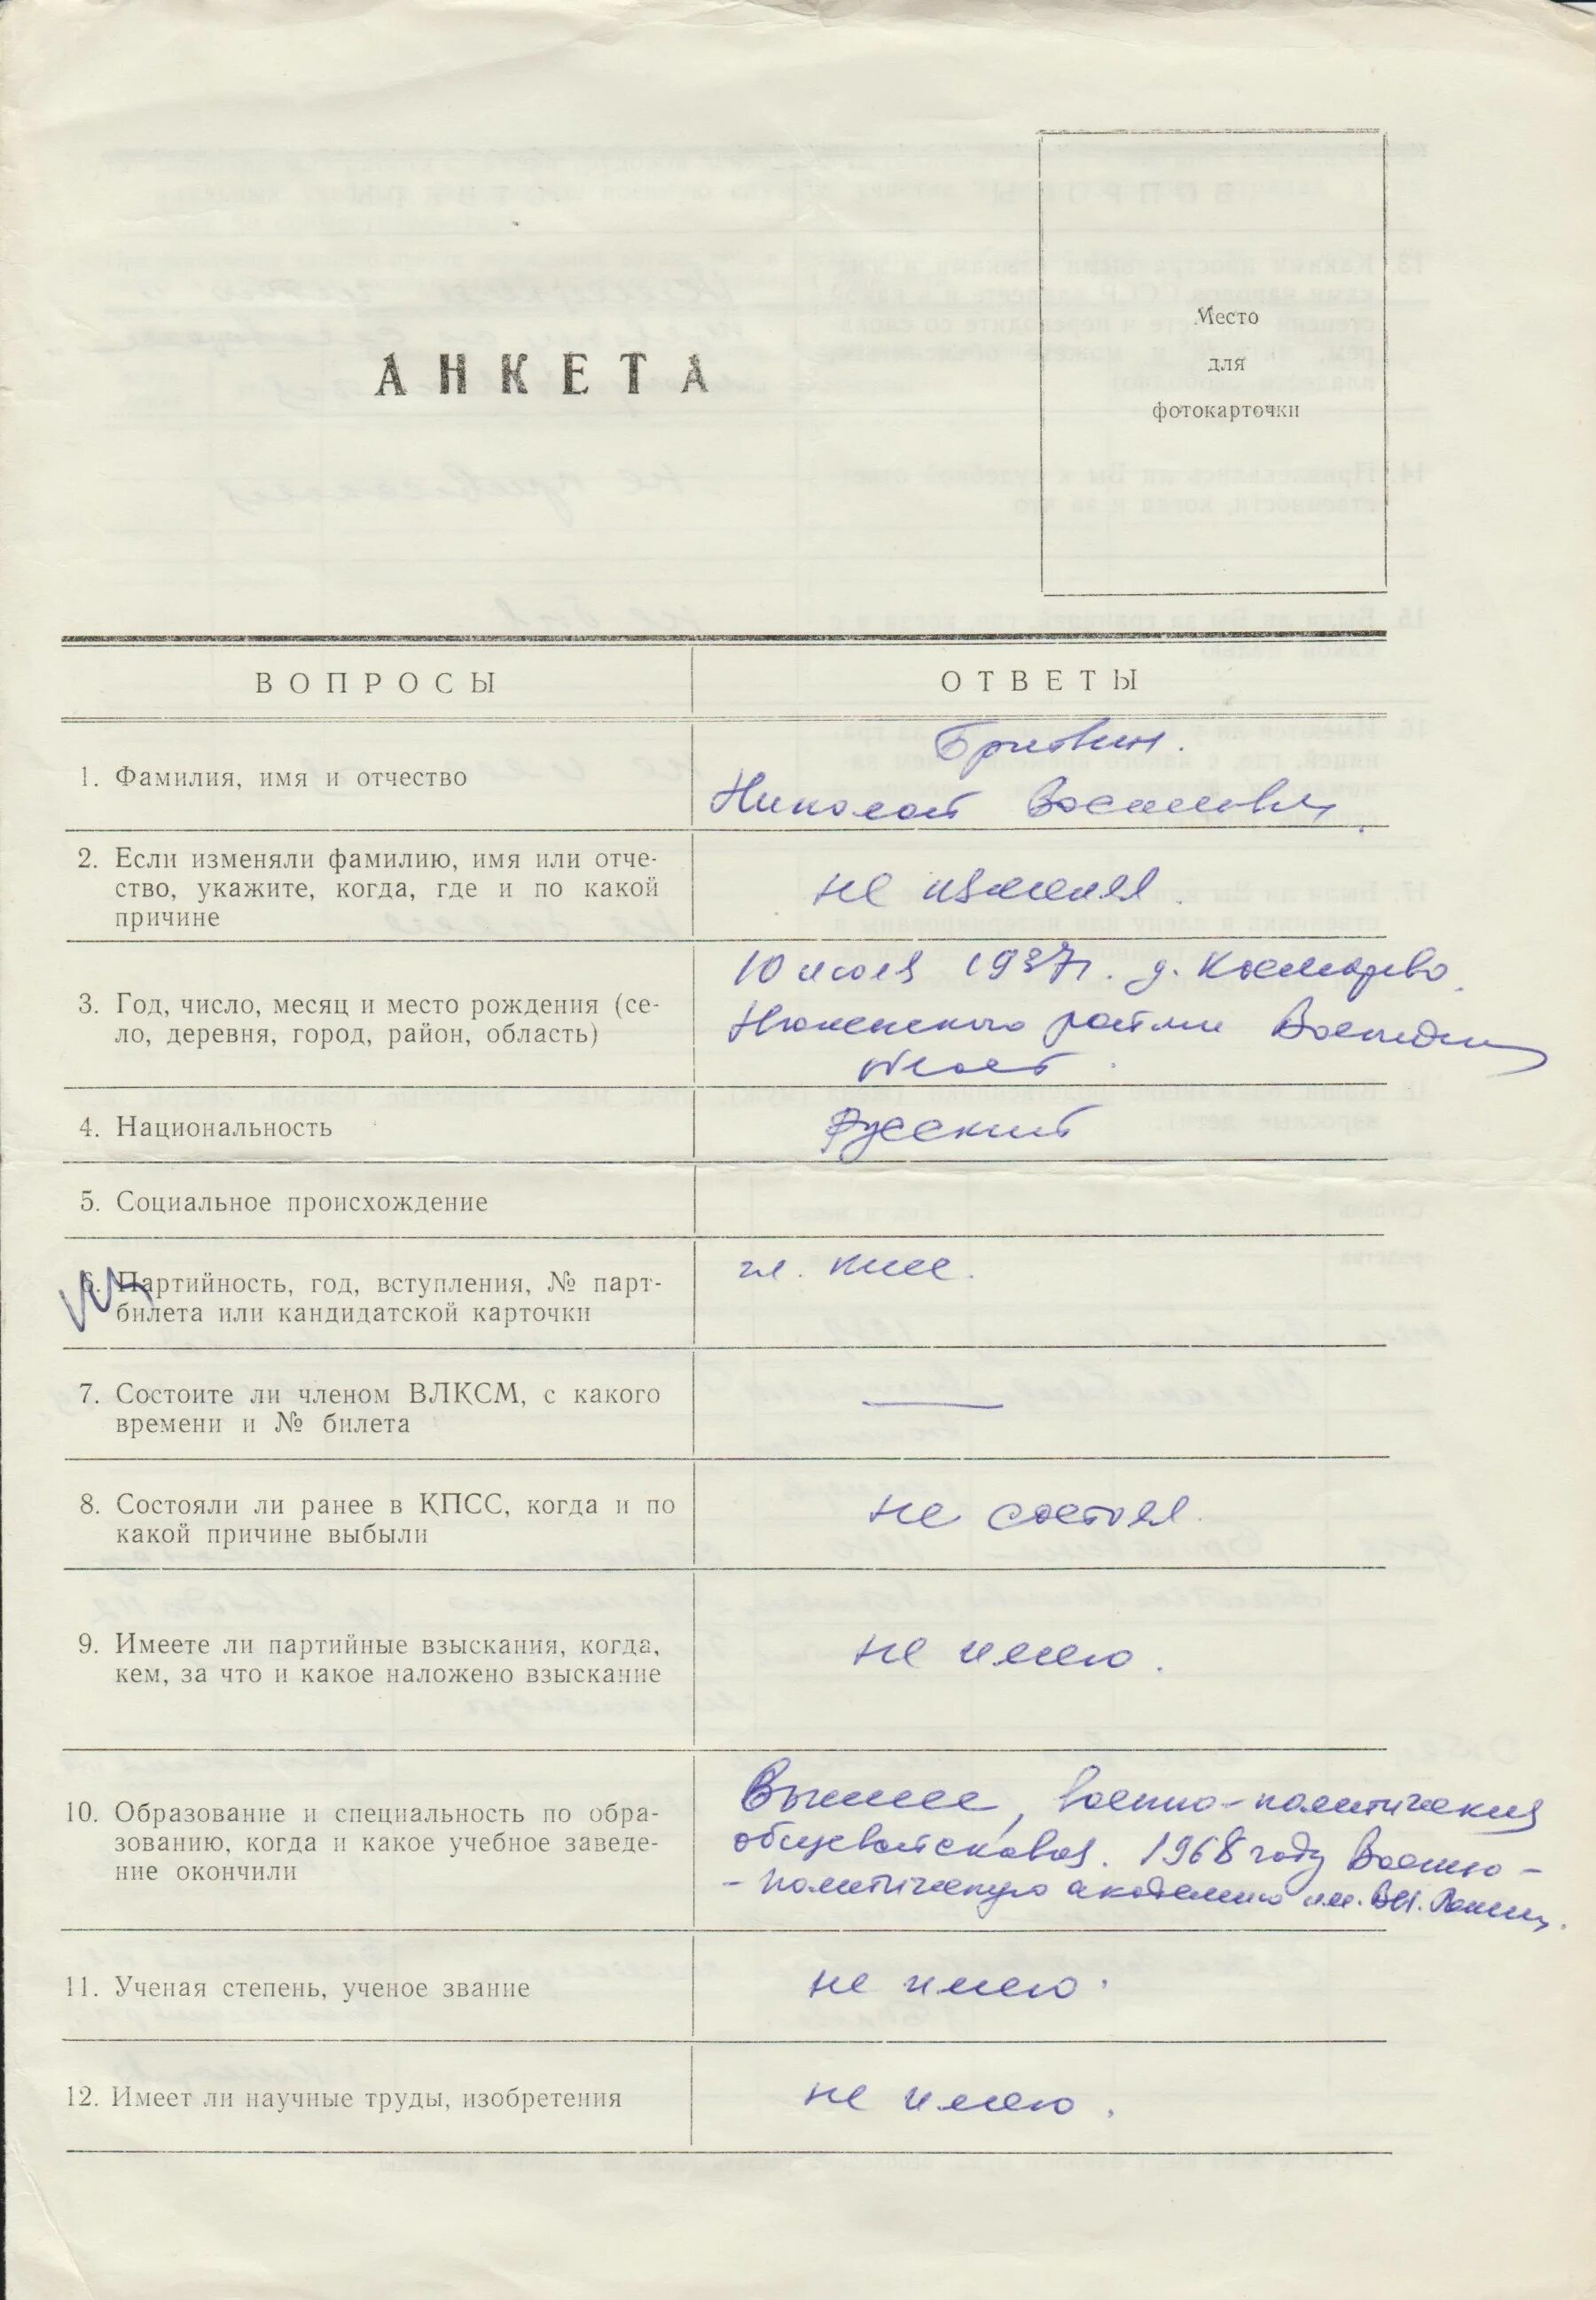 АНКЕТА
Место
для
фотокарточки
ВОПРОСЫ
ОТВЕТЫ
1. Фамилия, имя и отчество
Бритвин.
Николай Васильевич
2. Если изменяли фамилию, имя или отче-
ство, укажите, когда, где и по какой
причине
не изменял.
3. Год, число, месяц и место рождения (се-
ло, деревня, город, район, область)
10 июля 1937г. д.
Нюксенского района Вологодской
област.
4. Национальность
Русский
5. Социальное происхождение
6. Партийность, год, вступления, № парт-
билета или кандидатской карточки
чл. КПСС.
7. Состоите ли членом ВЛКСМ, с какого
времени и № билета
—
8. Состояли ли ранее в КПСС, когда и по
какой причине выбыли
не состоял.
9. Имеете ли партийные взыскания, когда,
кем, за что и какое наложено взыскание
не имею.
10. Образование и специальность по обра-
зованию, когда и какое учебное заведе-
ние окончили
Высшее, военно-политическая
общевойсковая. 1968 году Военно-
-политическую академию им. В.И. Ленина.
11. Ученая степень, ученое звание
не имею.
12. Имеет ли научные труды, изобретения
не имею.